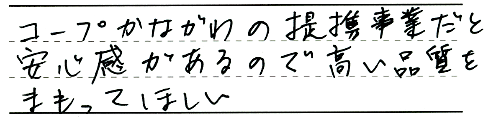 コープかながわの提携事業だと
安心感があるので高い品質を
まもってほしい